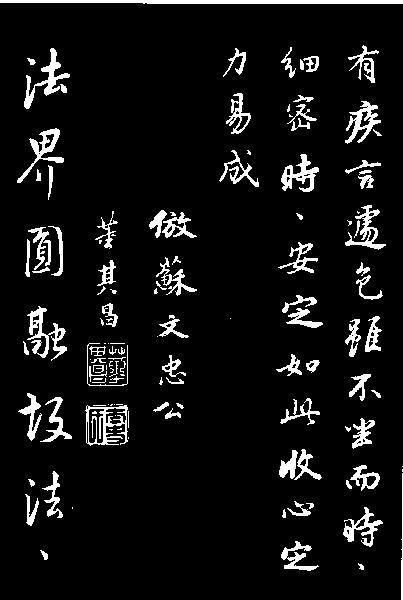 有疾言遽色雖不坐而時、
細密時、安定如此收心定
力易成
倣蘇文忠公
董其昌
法界圓融故法、